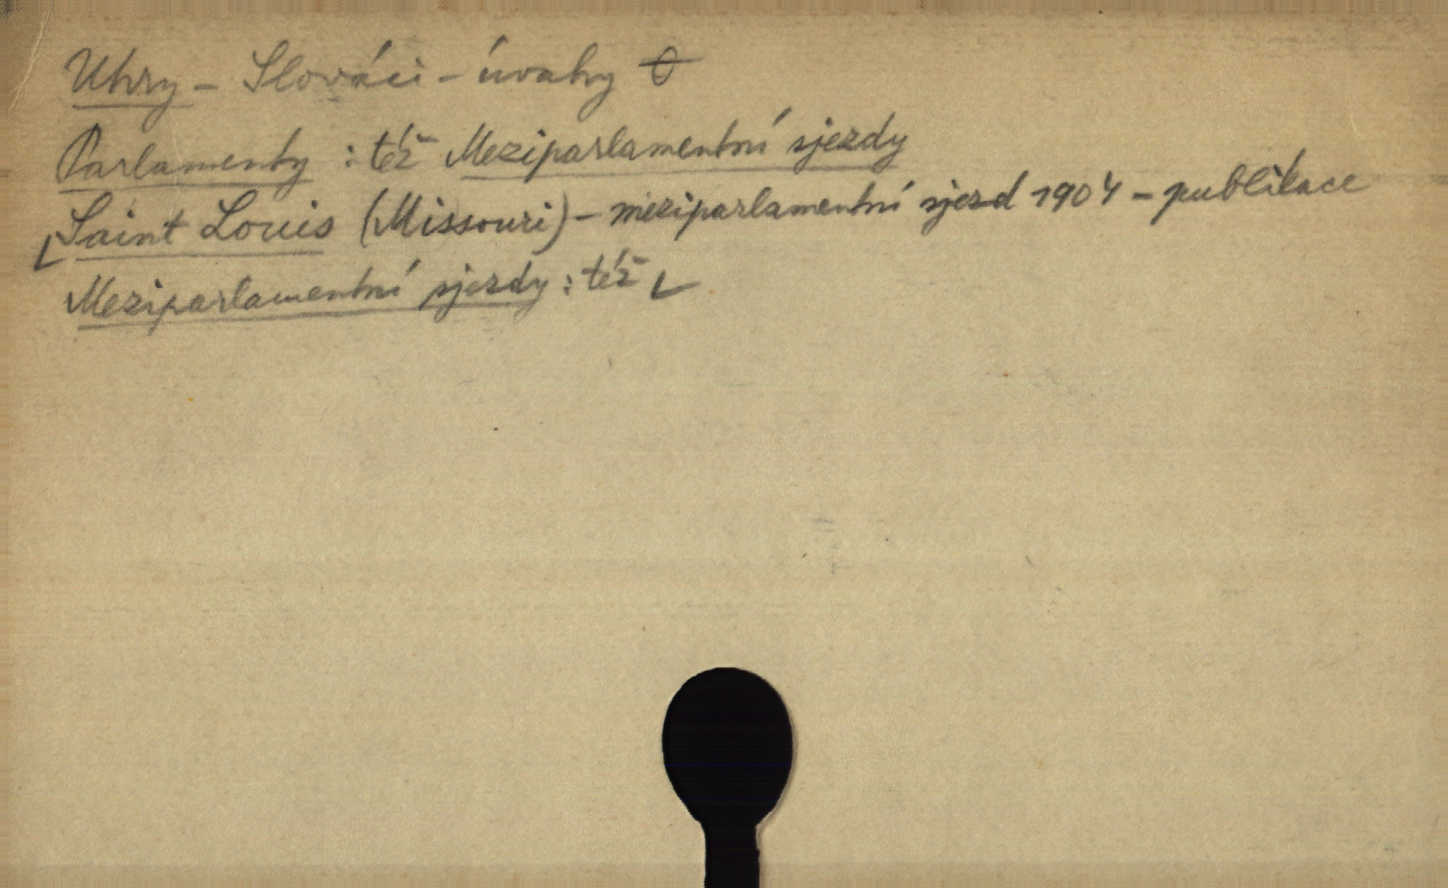 Uhry - Slováci - úvahy
Parlamenty : též Meziparlamentní sjezdy
Saint Louis (Missouri) - meziparlamentní sjezd 1904 - publikace
Meziparlamentní sjezdy : též